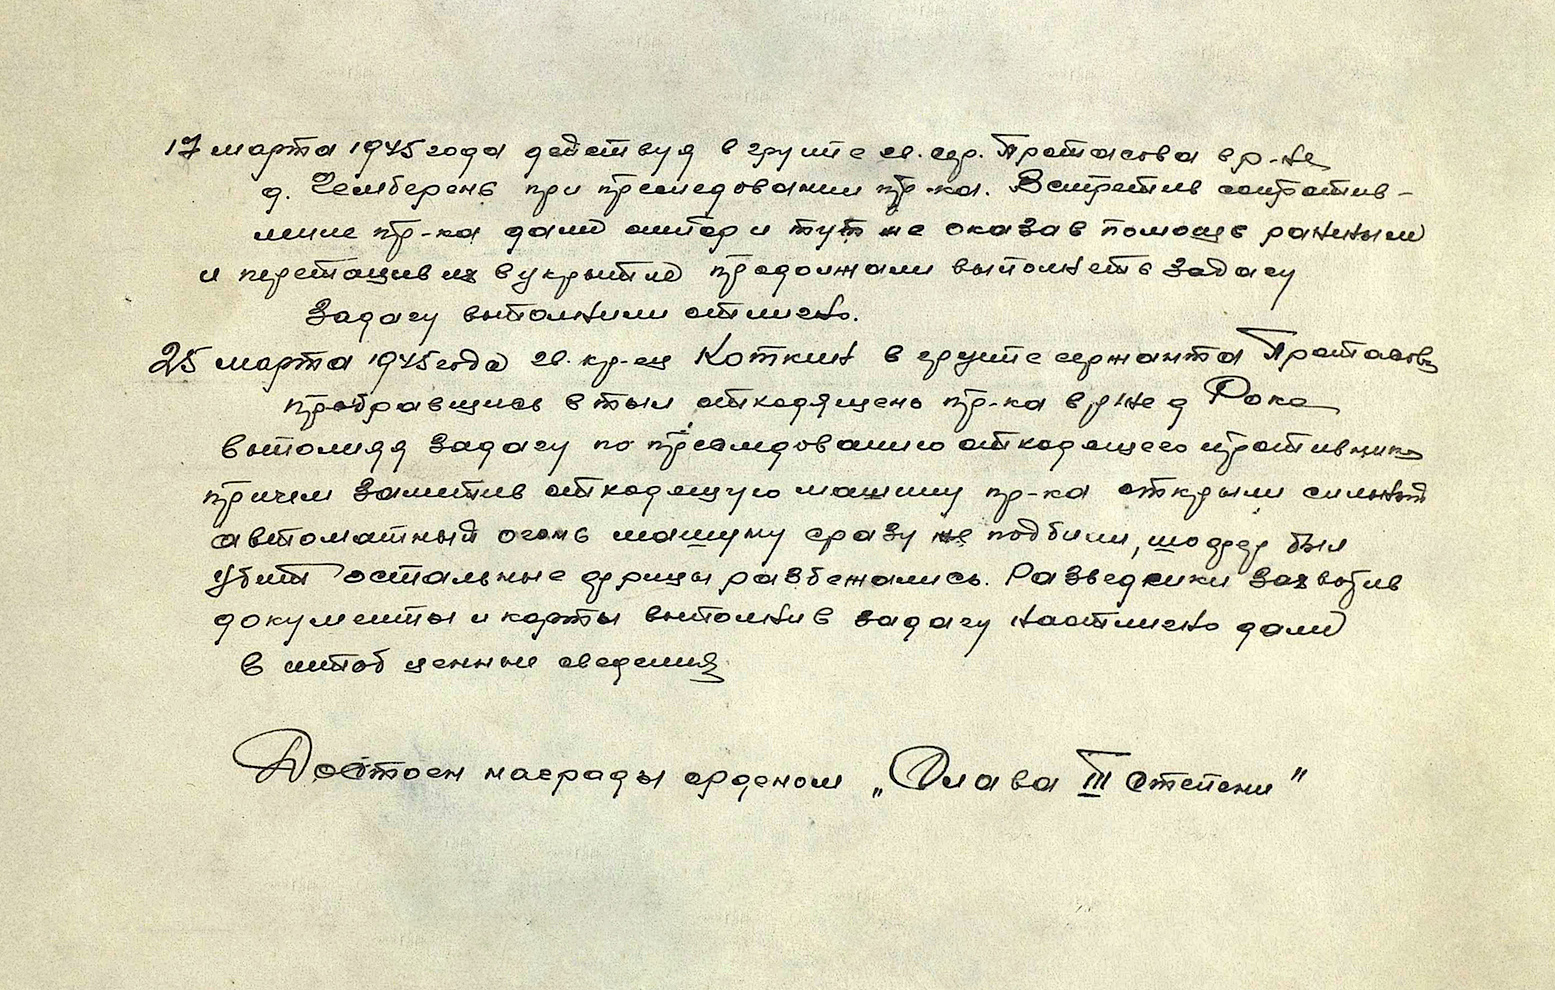 17 марта 1945 года действуя в групе гв. сер. Протасова в р-не
д. Чемберень при преследовании пр-ка. Встретив сопротив-
ление пр-ка дали отпор и тут же оказав помощь раненым
и перетащив их в укрытие продолжали выполнеть задачу
Задачу выполнили отлично.
25 марта 1945 года гв. кр-ец Коткин в групе сержанта Протасова
пробравшись в тыл отходящего пр-ка в р-не д Рока
выполняя задачу по преследованию отходящего противника
причем заметив отходящую машину пр-ка открыли сильный
автоматный огонь машину сразу же подбили, шофер был
убит остальные фрицы разбежались. Разведчики захватив
документы и карты выполнив задачу наотлично дали
в штаб ценные сведения

Достоен награды орденом „Слава III степени"